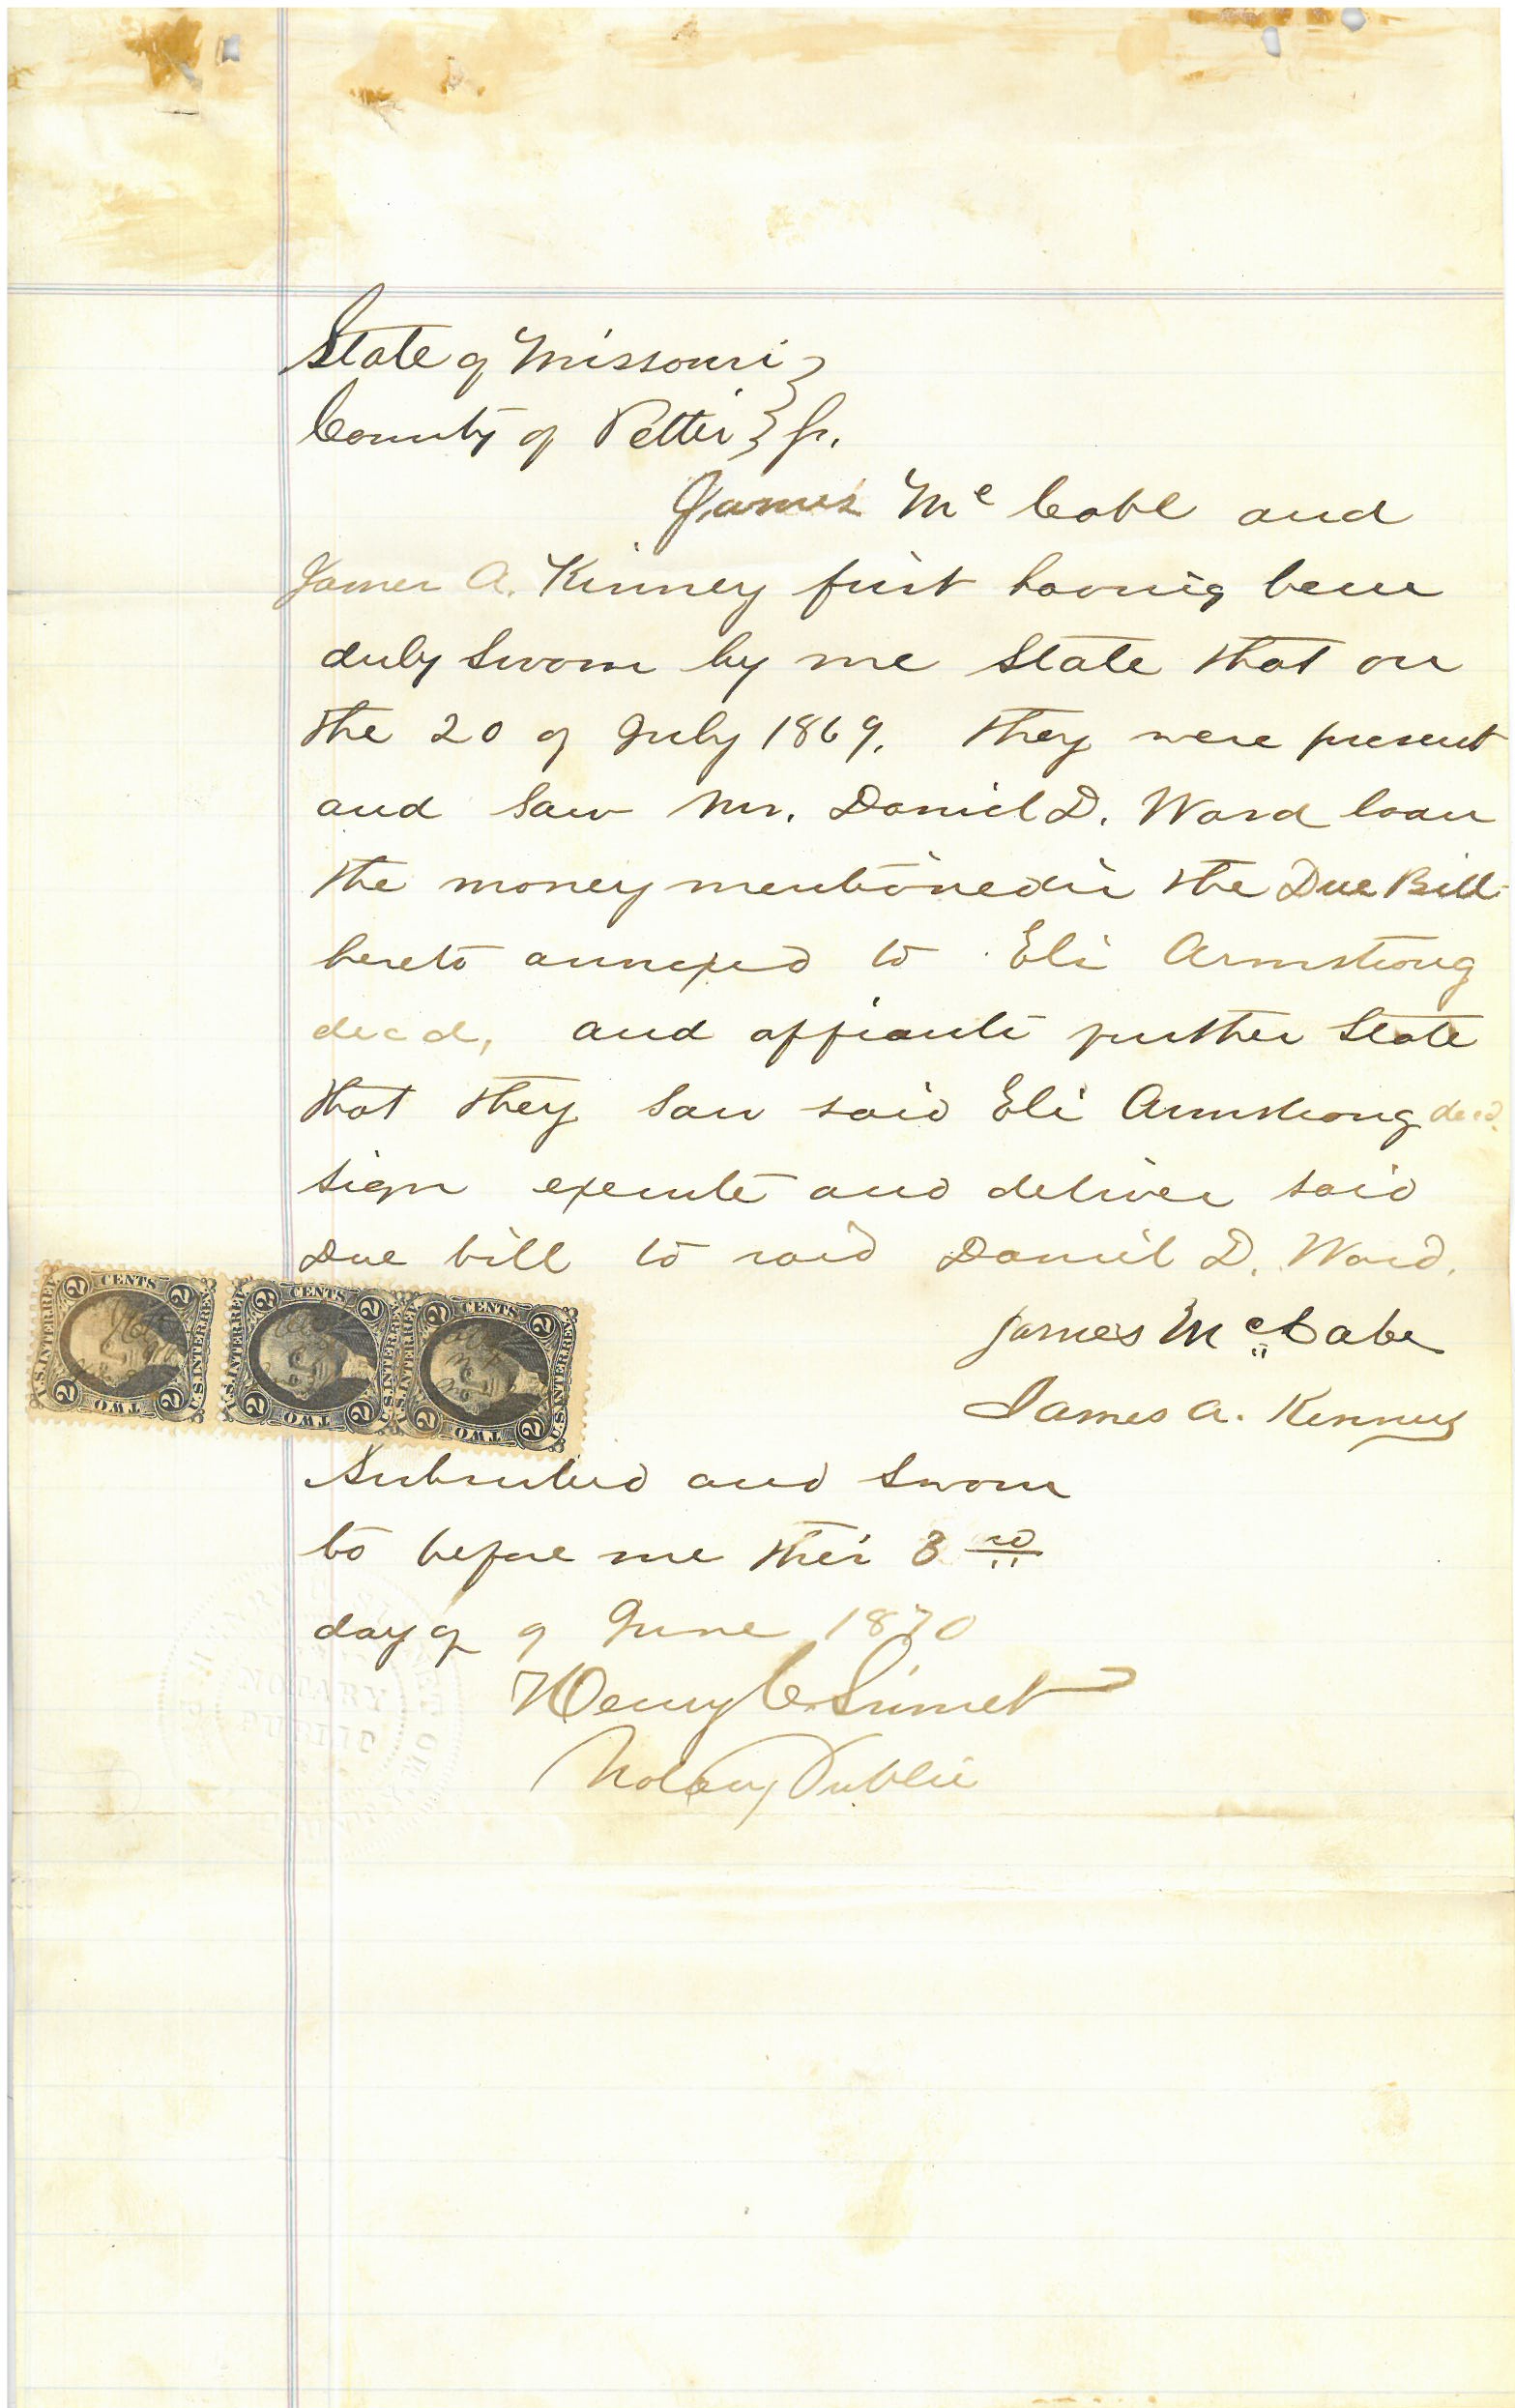 State of Missouri }
County of Pettis } ss.
James McCabe and
James A. Kinney first having been
duly Sworn by me State that on
the 20 of July 1869. they were present
and Saw Mr. Daniel D. Ward loan
the money mentioned in the Due Bill
hereto annexed to Eli Armstrong
decd, and affiants further State
that they Saw said Eli Armstrong decd.
sign execute and deliver said
Due bill to said Daniel D. Ward.
James McCabe
James A. Kenney
2 CENTS 2
U.S. INTER. REV.
2 TWO 2
2 CENTS 2
U.S. INTER. REV.
2 TWO 2
2 CENTS 2
U.S. INTER. REV.
2 TWO 2
Subscribed and Sworn
to before me this 3rd
day of of June 1870
Henry C. Sinnet
Notary Public
NOTARY
PUBLIC